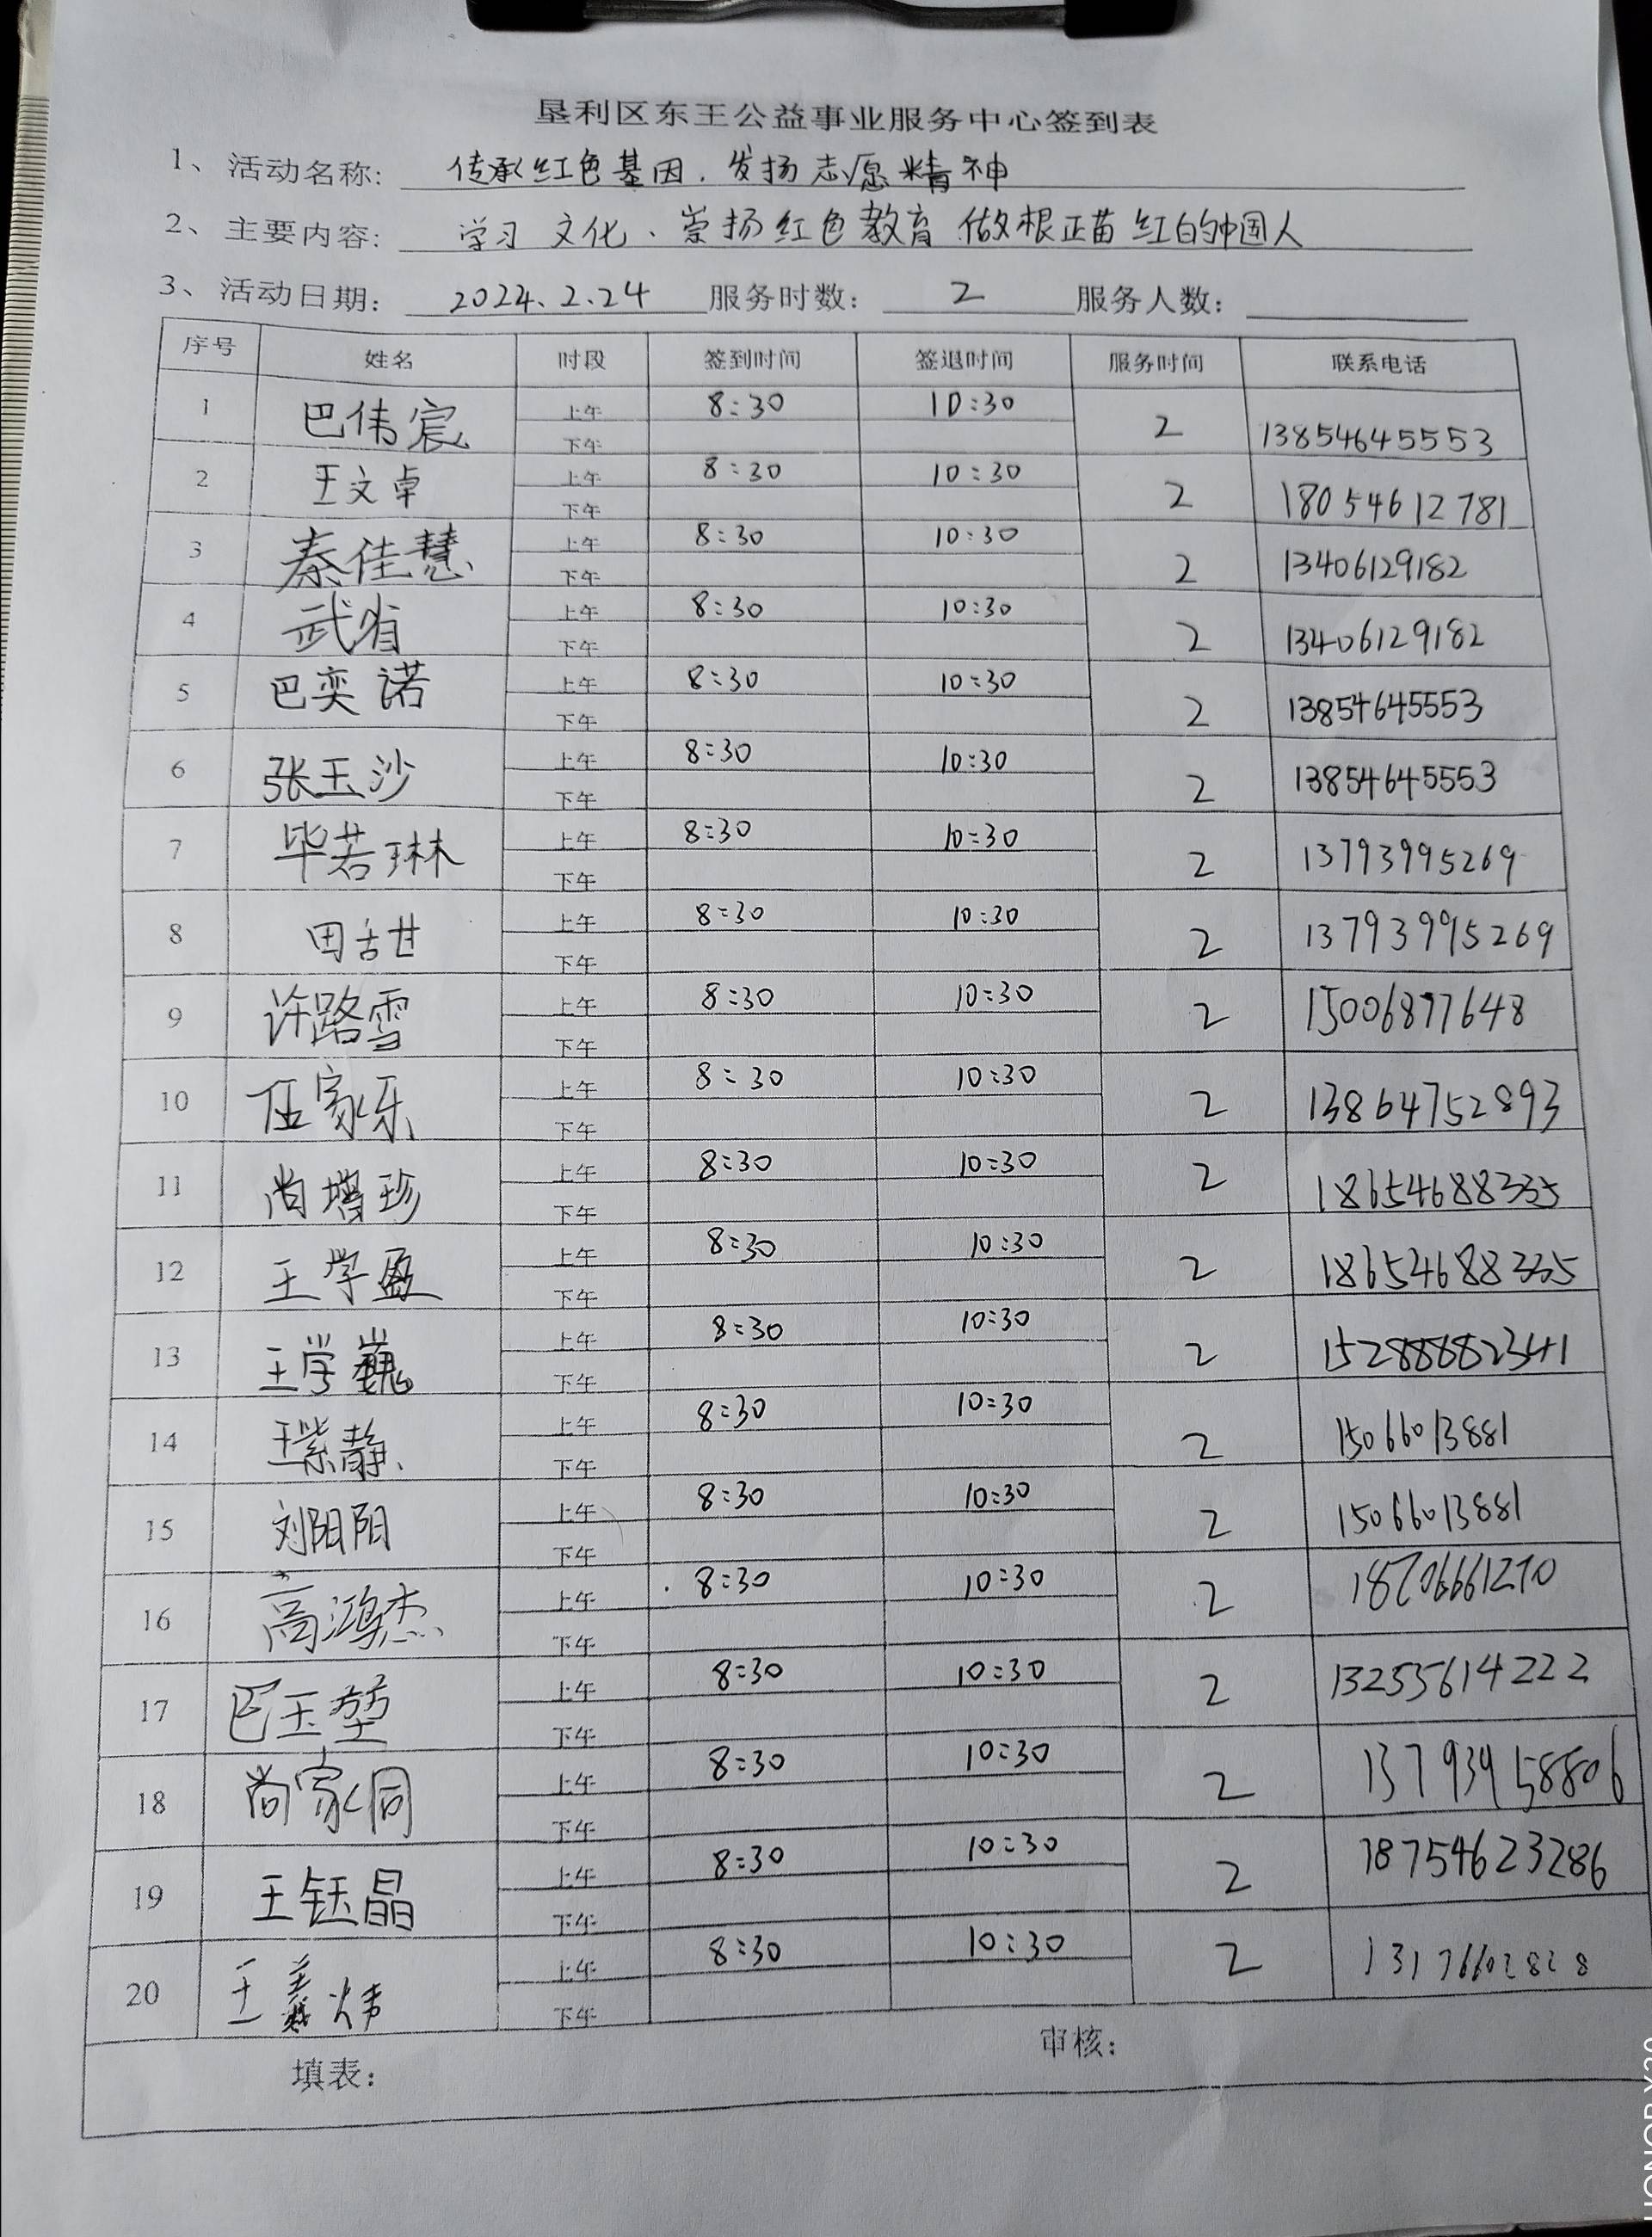 垦利区东王公益事业服务中心签到表
1、活动名称: 传承红色基因.发扬志愿精神
2、主要内容: 学习文化、崇扬红色教育 做根正苗红的中国人
3、活动日期: 2024.2.24 服务时数: 2 服务人数:
序号 姓名 时段 签到时间 签退时间 服务时间 联系电话
1 巴伟宸 上午 8:30 10:30 2 13854645553
下午
2 王文卓 上午 8:30 10:30 2 18054612781
下午
3 秦佳慧 上午 8:30 10:30 2 13406129182
下午
4 武省 上午 8:30 10:30 2 13406129182
下午
5 巴奕诺 上午 8:30 10:30 2 13854645553
下午
6 张玉沙 上午 8:30 10:30 2 13854645553
下午
7 毕若琳 上午 8:30 10:30 2 13793995269
下午
8 田古世 上午 8:30 10:30 2 13793995269
下午
9 许路雪 上午 8:30 10:30 2 15006877648
下午
10 伍家乐 上午 8:30 10:30 2 13864752893
下午
11 尚增珍 上午 8:30 10:30 2 18654688335
下午
12 王学盈 上午 8:30 10:30 2 18654688335
下午
13 王学巍 上午 8:30 10:30 2
下午
14 王紫静 上午 8:30 10:30 2 15066013881
下午
15 刘阳阳 上午 8:30 10:30 2 15066013881
下午
16 高鸿杰 上午 8:30 10:30 2
下午
17 巴玉堃 上午 8:30 10:30 2 13255614222
下午
18 尚家同 上午 8:30 10:30 2 13793958806
下午
19 王钰晶 上午 8:30 10:30 2 18754623286
下午
20 王義炜 上午 8:30 10:30 2 13176602828
下午
填表: 审核: